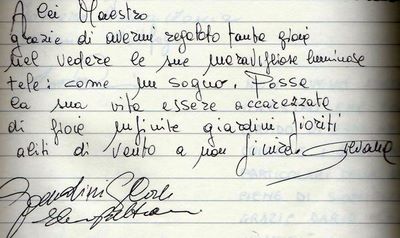 A lei Maestro
grazie di avermi regalato tante gioie
nel vedere le sue meravigliose luminose
tele: come un sogno. Possa
la sua vita essere accarezzata
di gioie infinite giardini fioriti
aliti di vento a non finire. Silvana